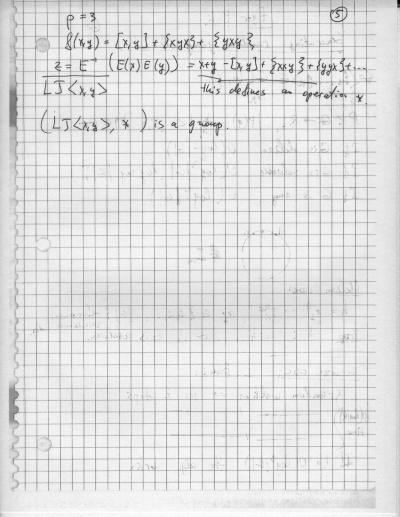 ⑤
p = 3
f(x,y) = [x,y] + {xyx} + {yxy},
z = E⁻¹ (E(x) E(y)) = x+y -[x,y] + {xxy} + {yyx} + ...
LJ<x,y> this defines an operation *.
(LJ<x,y>, *) is a group.